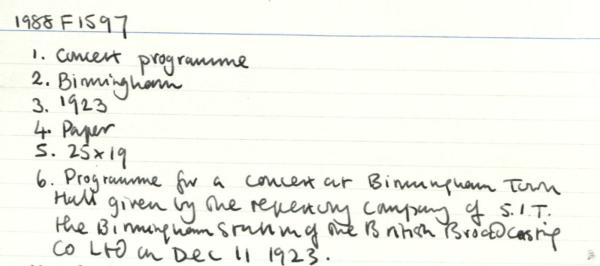 1988 F1597
1. Concert programme
2. Birmingham
3. 1923
4. Paper
5. 25x19
6. Programme for a concert at Birmingham Town
Hall given by the repertory company of S.I.T.
the Birmingham Station of the British Broadcasting
Co LtD on Dec 11 1923.